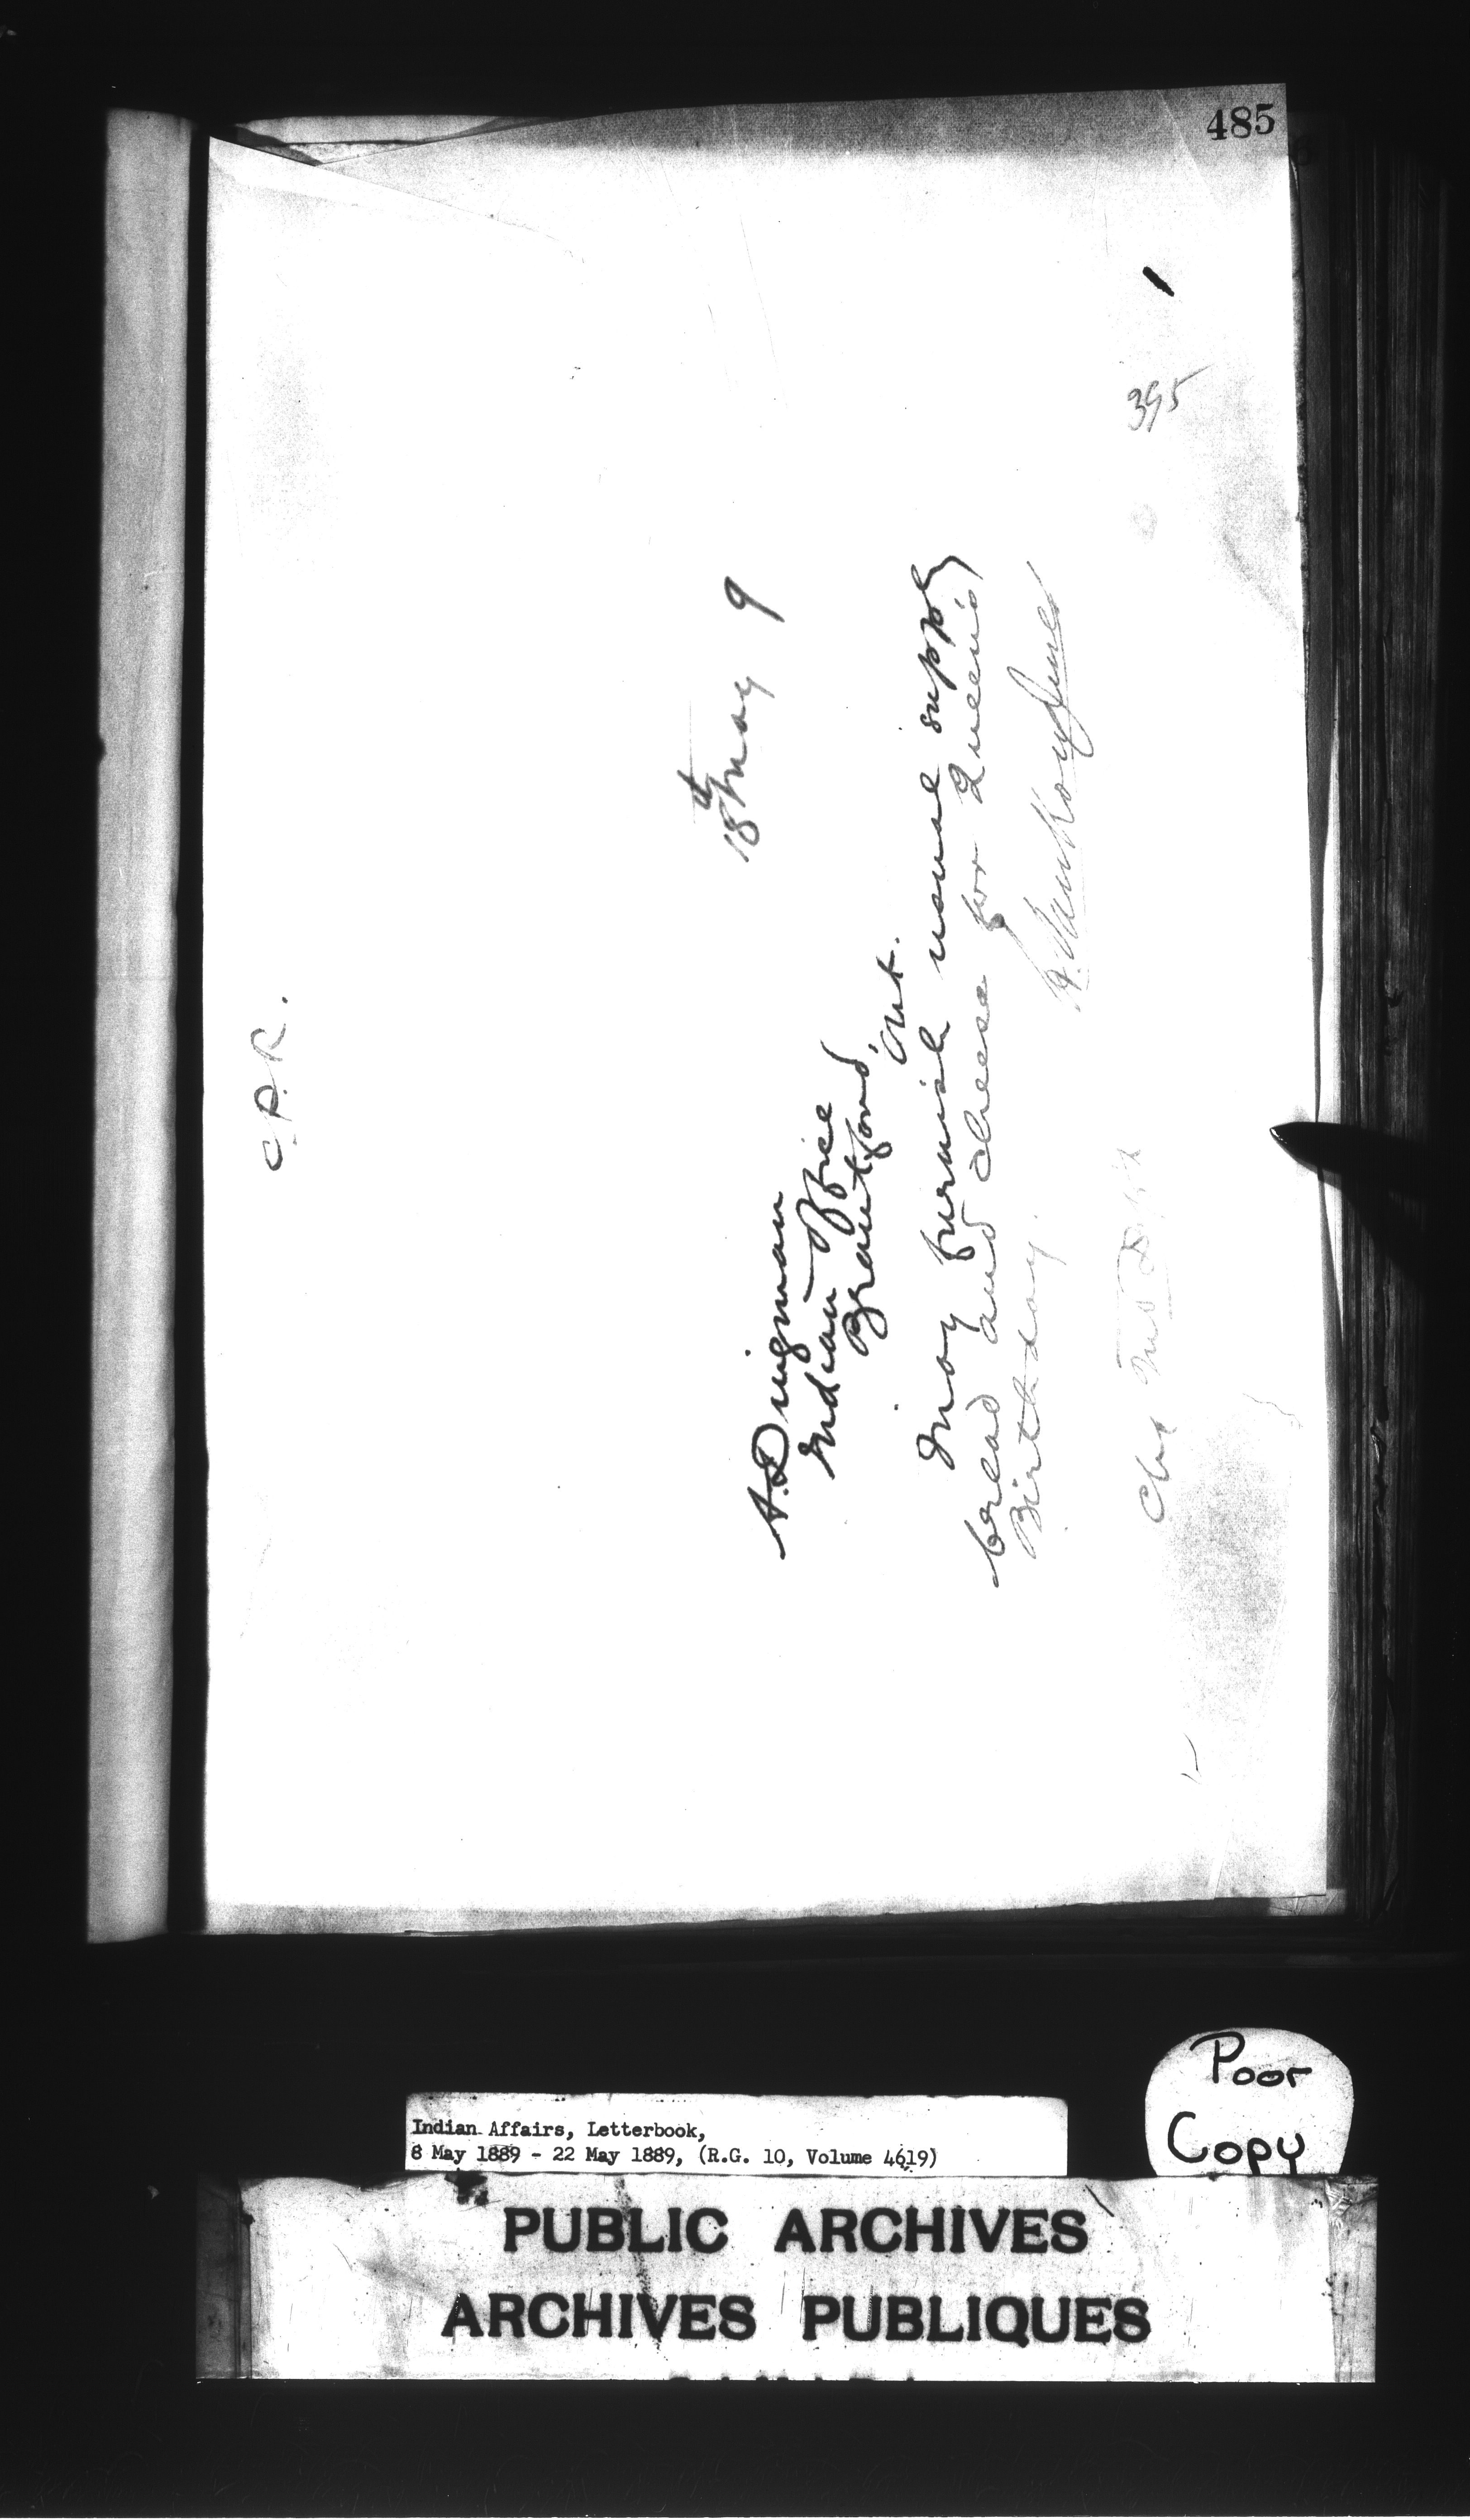 485
395
C.P.R.
18th May 9
A. Dingman
Indian Office
Brantford,
Ont.
May furnish usual supply
bread and cheese for Queen's
Birthday.
L. Vankoughnet
Chg Ind Dept
Poor
Copy
Indian Affairs, Letterbook,
8 May 1889 - 22 May 1889, (R.G. 10, Volume 4619)
PUBLIC ARCHIVES
ARCHIVES PUBLIQUES